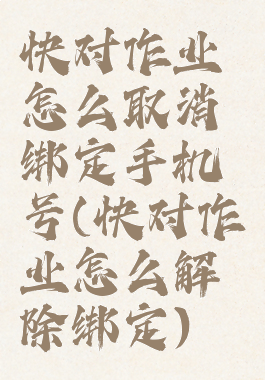 快对作业
怎么取消
绑定手机
号(快对作
业怎么解
除绑定)